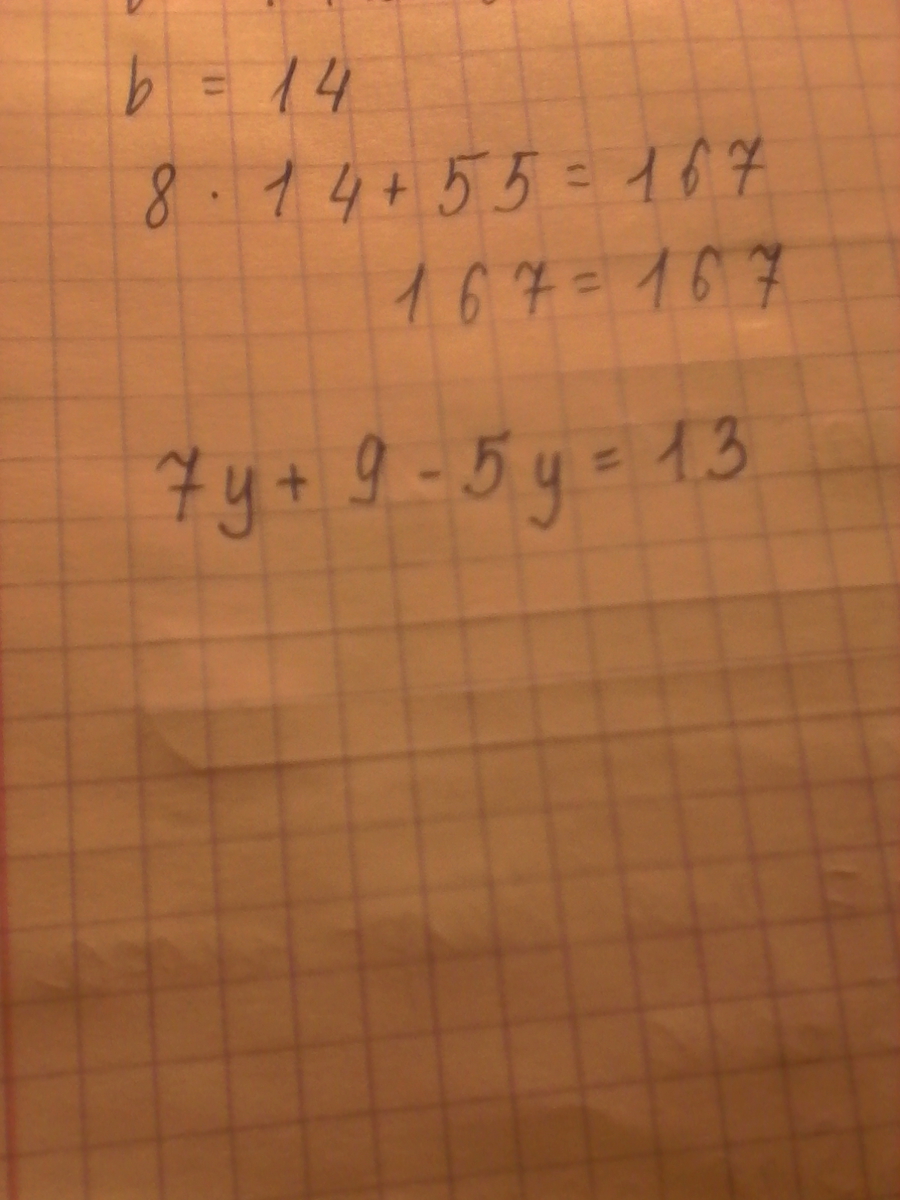 b = 14
8 · 14 + 55 = 167
167 = 167
7y + 9 - 5y = 13